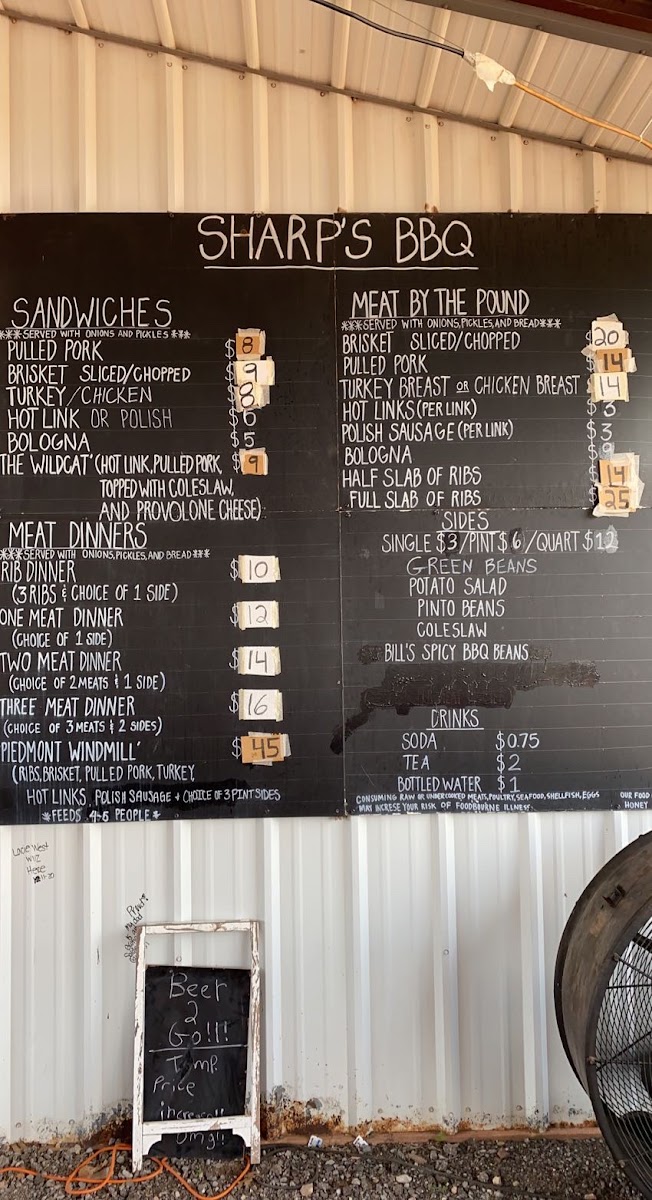 SHARP'S BBQ
SANDWICHES
***SERVED WITH ONIONS AND PICKLES***
PULLED PORK $8
BRISKET SLICED/CHOPPED $9
TURKEY/CHICKEN $8
HOT LINK OR POLISH $6
BOLOGNA $5
THE WILDCAT' (HOT LINK, PULLED PORK, $9
TOPPED WITH COLESLAW,
AND PROVOLONE CHEESE)
MEAT DINNERS
***SERVED WITH ONIONS, PICKLES, AND BREAD***
RIB DINNER $10
(3 RIBS & CHOICE OF 1 SIDE)
ONE MEAT DINNER $12
(CHOICE OF 1 SIDE)
TWO MEAT DINNER $14
(CHOICE OF 2 MEATS & 1 SIDE)
THREE MEAT DINNER $16
(CHOICE OF 3 MEATS & 2 SIDES)
PIEDMONT WINDMILL' $45
(RIBS, BRISKET, PULLED PORK, TURKEY,
HOT LINKS, POLISH SAUSAGE + CHOICE OF 3 PINT SIDES
*FEEDS 4-5 PEOPLE*
MEAT BY THE POUND
***SERVED WITH ONIONS, PICKLES, AND BREAD***
BRISKET SLICED/CHOPPED $20
PULLED PORK $14
TURKEY BREAST OR CHICKEN BREAST $14
HOT LINKS (PER LINK) $3
POLISH SAUSAGE (PER LINK) $3
BOLOGNA $9
HALF SLAB OF RIBS $14
FULL SLAB OF RIBS $25
SIDES
SINGLE $3/PINT $6/QUART $12
GREEN BEANS
POTATO SALAD
PINTO BEANS
COLESLAW
BILL'S SPICY BBQ BEANS
DRINKS
SODA $0.75
TEA $2
BOTTLED WATER $1
CONSUMING RAW OR UNDERCOOKED MEATS, POULTRY, SEAFOOD, SHELLFISH, EGGS
MAY INCRESE YOUR RISK OF FOODBOURNE ILLNESS.
OUR FOOD
HONEY
West
Here
Beer
2
Go!!!
Temp.
Price
increase!!
omg!!